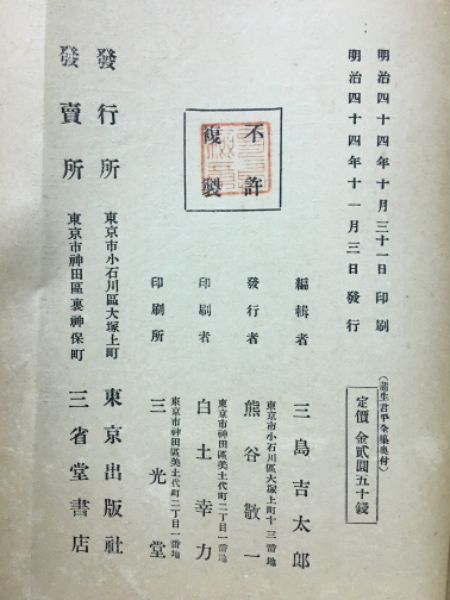 明治四十四年十月三十一日印刷
明治四十四年十一月三日發行
(蒲生君平全集奥付)
定價金貳圓五十錢
不許
複製
編輯者 三島吉太郎
東京市小石川區大塚上町十三番地
發行者 熊谷敬一
東京市神田區美土代町二丁目一番地
印刷者 白土幸力
東京市神田區美土代町二丁目一番地
印刷所 三光堂
發行所 東京市小石川區大塚上町 東京出版社
發賣所 東京市神田區裏神保町 三省堂書店